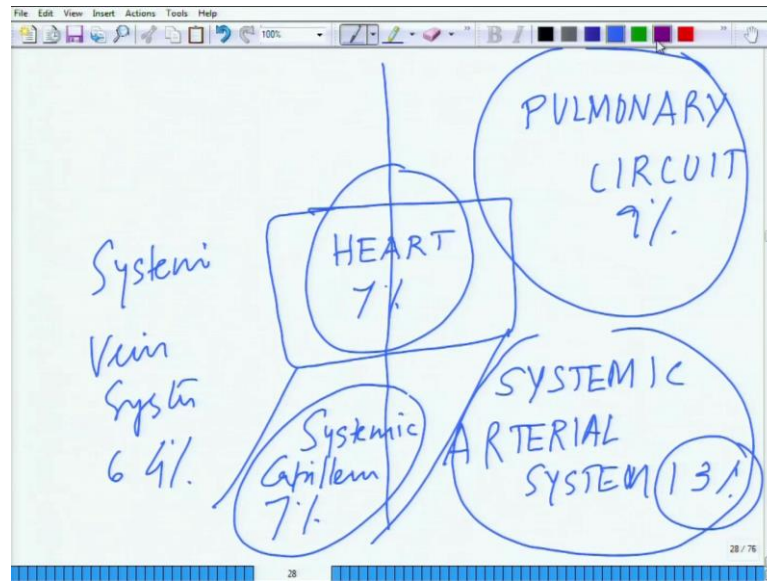 File Edit View Insert Actions Tools Help
100%
B I
PULMONARY
CIRCUIT
9%.
HEART
7%
Systemi
Vein
System
64%.
Systemic
Capillem
7%.
SYSTEMIC
ARTERIAL
SYSTEM 13%
28 / 76
28